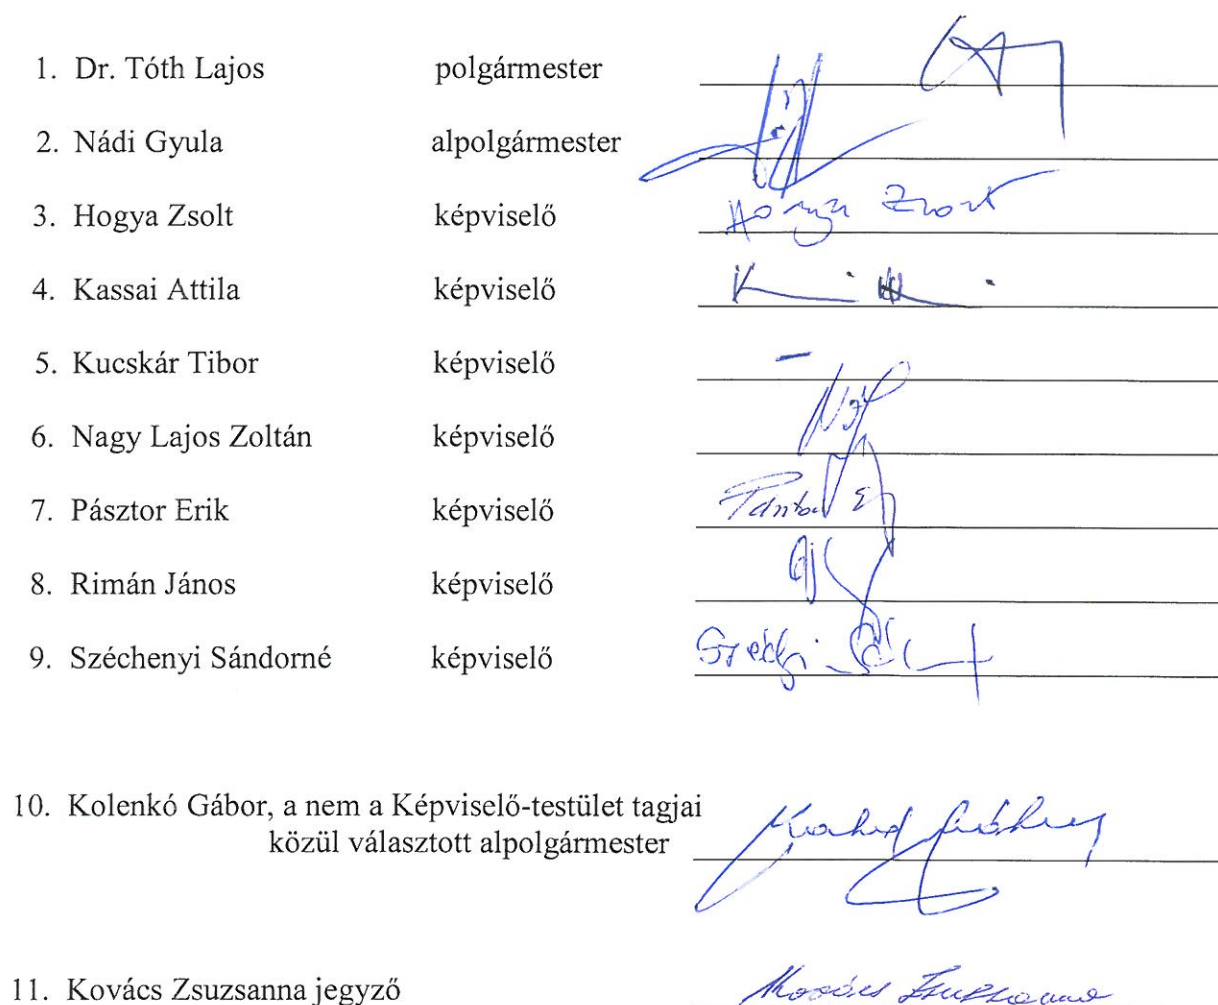 1. Dr. Tóth Lajos polgármester
2. Nádi Gyula alpolgármester
3. Hogya Zsolt képviselő Hogya Zsolt
4. Kassai Attila képviselő
5. Kucskár Tibor képviselő -
6. Nagy Lajos Zoltán képviselő
7. Pásztor Erik képviselő
8. Rimán János képviselő
9. Széchenyi Sándorné képviselő
10. Kolenkó Gábor, a nem a Képviselő-testület tagjai
közül választott alpolgármester
11. Kovács Zsuzsanna jegyző Kovács Zsuzsanna